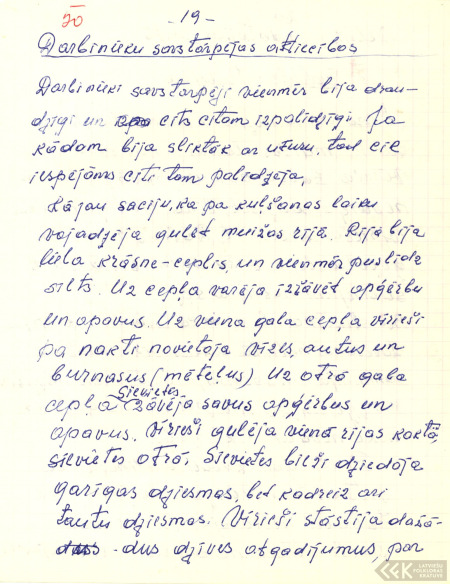 70
- 19 -
Darbinieku savstarpējās attiecības
Darbinieki savstarpēji vienmēr bija drau-
dzīgi un cits citam izpalīdzīgi. Ja
kādam bija sliktāk ar uzturu, tad cik
iespējams citi tam palīdzēja.
Kā jau sacīju, ka pa kulšanas laiku
vajadzēja gulēt muižas rijā. Rijā bija
liela krāsns-ceplis, un vienmēr puslīdz
silts. Uz cepļa varēja izžāvēt apģērbu
un apavus. Uz viena gala cepļa vīrieši
pa nakti novietoja vīzes, autus un
burnasus (mēteļus) Uz otrā gala
cepļa sievietes žāvēja savus apģērbus un
apavus. Vīrieši gulēja vienā rijas kaktā,
sievietes otrā. Sievietes bieži dziedāja
garīgas dziesmas, bet kādreiz arī
tautu dziesmas. Vīrieši stāstīja dažā-
dus dzīves atgadījumus, par
LFK LATVIEŠU FOLKLORAS KRĀTUVE